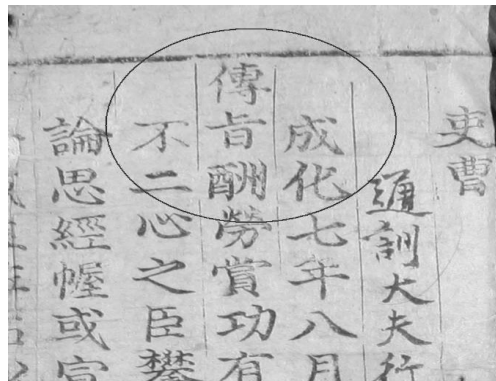 吏曹
通訓大夫行
成化七年八月
傳旨酬勞賞功有
不二心之臣攀
論思經幄或宣